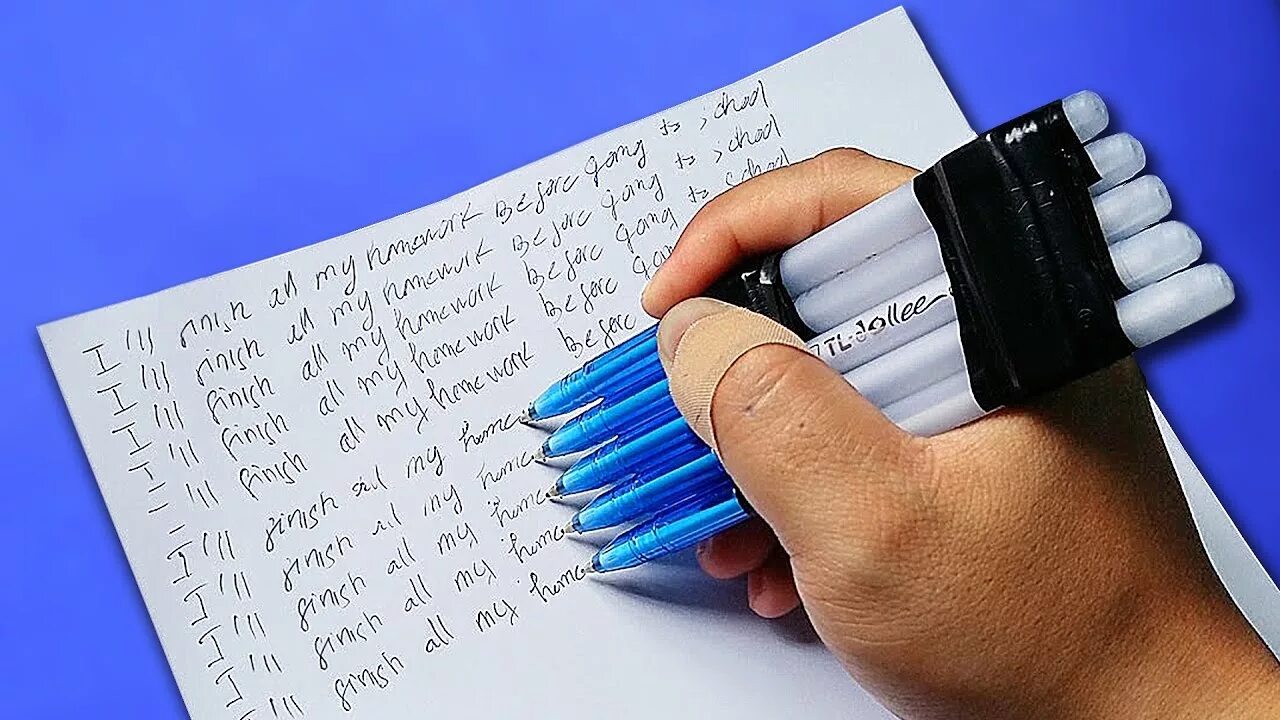 I'll finish all my homework Before going to school
I'll finish all my homework Before going to school
I'll finish all my homework Before going to school
I'll finish all my homework Before
I'll finish all my homework Before
I'll finish all my home
I'll finish all my home
I'll finish all my home
I'll finish all my home
I'll finish all my home
TL-Jollee